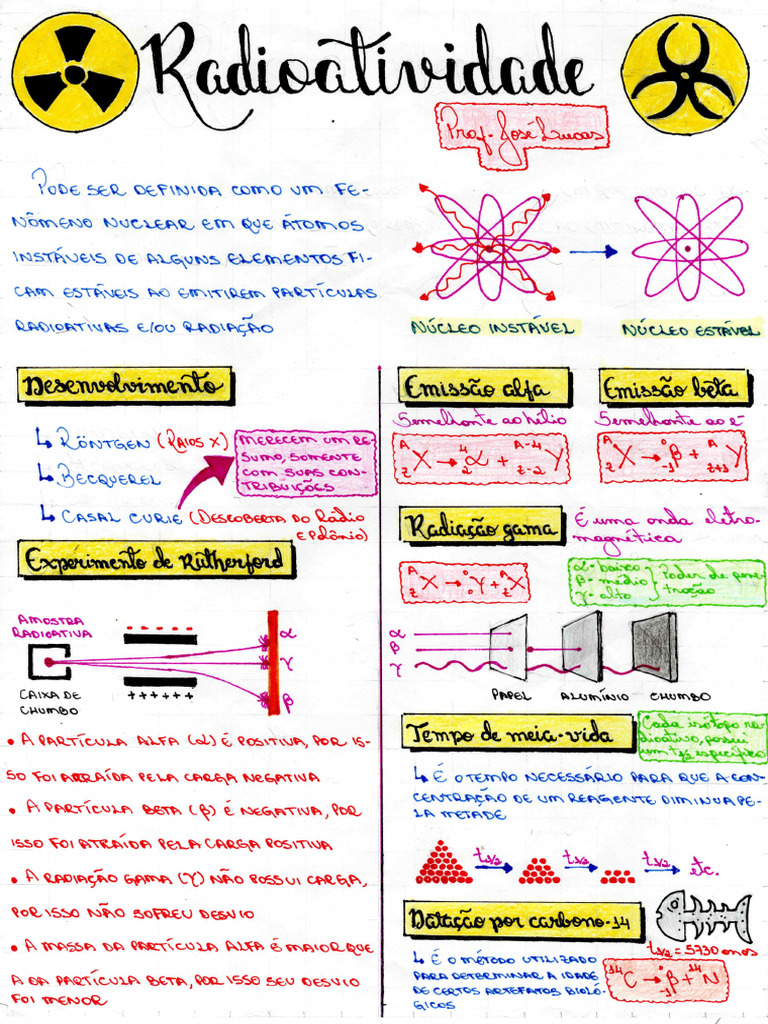 Radioatividade
Prof. José Lucas
PODE SER DEFINIDA COMO UM FE-
NÔMENO NUCLEAR EM QUE ÁTOMOS
INSTÁVEIS DE ALGUNS ELEMENTOS FI-
CAM ESTÁVEIS AO EMITIREM PARTÍCULAS
RADIOATIVAS E/OU RADIAÇÃO
NÚCLEO INSTÁVEL
NÚCLEO ESTÁVEL
Desenvolvimento
↳ RÖNTGEN (RAIOS X)
↳ BECQUEREL
↳ CASAL CURIE (DESCOBERTA DO RÁDIO
E POLÔNIO)
MERECEM UM RE-
SUMO, SOMENTE
COM SUAS CON-
TRIBUIÇÕES
Experimento de Rutherford
AMOSTRA
RADIOATIVA
CAIXA DE
CHUMBO
- - - - -
++++++
α
γ
β
• A PARTÍCULA ALFA (α) É POSITIVA, POR IS-
SO FOI ATRAÍDA PELA CARGA NEGATIVA
• A PARTÍCULA BETA (β) É NEGATIVA, POR
ISSO FOI ATRAÍDA PELA CARGA POSITIVA
• A RADIAÇÃO GAMA (γ) NÃO POSSUI CARGA,
POR ISSO NÃO SOFREU DESVIO
• A MASSA DA PARTÍCULA ALFA É MAIOR QUE
A DA PARTÍCULA BETA, POR ISSO SEU DESVIO
FOI MENOR
Emissão alfa
Semelhante ao hélio
A Z X → 4 2 α + A-4 Z-2 Y
Emissão beta
Semelhante ao e⁻
A Z X → 0 -1 β + A Z+1 Y
Radiação gama
É uma onda eletro-
magnética
A Z X → 0 0 γ + A Z X
α - baixo
β - médio } Poder de pene-
γ - alto } tração
α
β
γ
PAPEL
ALUMÍNIO
CHUMBO
Tempo de meia-vida
Cada isótopo ra-
dioativo, possui
um t1/2 específico
↳ É O TEMPO NECESSÁRIO PARA QUE A CON-
CENTRAÇÃO DE UM REAGENTE DIMINUA PE-
LA METADE
t1/2 → t1/2 → t1/2 → etc.
Datação por carbono-14
t1/2 = 5730 anos
↳ É O MÉTODO UTILIZADO
PARA DETERMINAR A IDADE
DE CERTOS ARTEFATOS BIOLÓ-
GICOS
14 C → 0 -1 β + 14 N